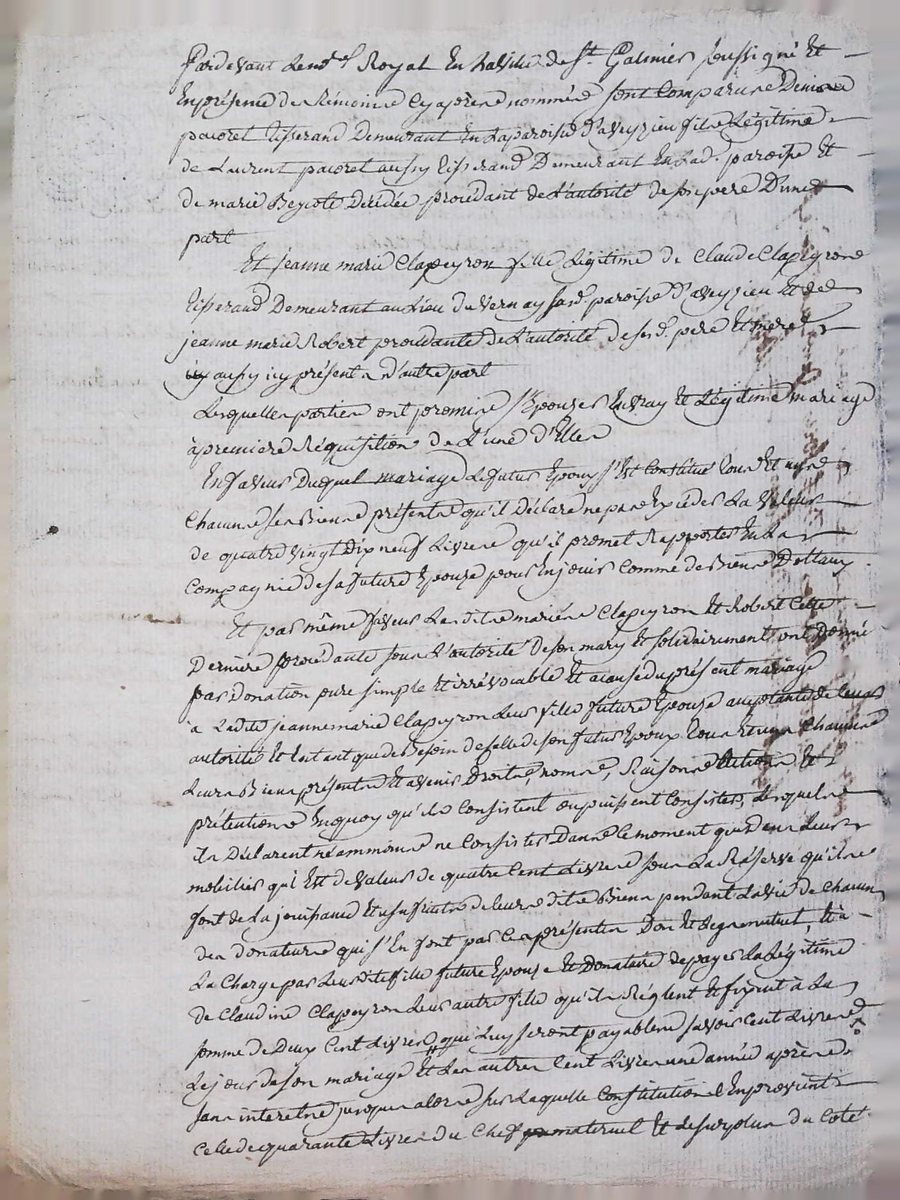 Pardevant Le no.re Royal En La Ville de St. Galmier soussigné Et
En présence des témoins Cy après nommés sont Comparus Denis
pacoret tisserand Demeurant En La paroisse d'aveyzieu fils Légitime
de Laurent pacoret aussy tisserand Demeurant En Lad. paroisse Et
de marie procédant de L'autorité de sespere D'une
part
Et jeanne marie Clapeyron fille Légitime de Claude Clapeyron
tisserand Demeurant au Lieu du vernay susd. paroisse d'aveyzieu Et de
jeanne marie Robert procédante de L'autorité de sesd. pere Et mere
aussy icy présents d'autre part
Lesquelles parties ont promis s'Epouser En vray Et Légitime mariage
à première Réquisition de L'une d'Elles
En faveur Duquel mariage Le futur Epoux s'Est Constitué tous Et uns
Chacuns ses Biens présents qu'il Déclare ne pas Excéder La valeur
de quatre vingt Dix neuf Livres qu'il promet Rapporter En La
Compagnie de sa future Epouze pour En jouir Comme de Biens Dottaux
Et par même faveur Lesdits mariés Clapeyron Et Robert Cette
Dernière procédante sous L'autorité De son mary Et solidairement ont Donné
par Donation pure simple Et irrévocable Et a cause du présent mariage
à Ladite jeanne marie Clapeyron Leur fille future Epouse acceptante de Leurs
autorité Et En tant que de Besoin de celle de son futur Epoux tous Et uns Chacuns
Leurs Biens présents Et avenir Droits, noms, Raisons actions Et
prétentions En quoy qu'ils Consistent ou puissent Consister, Lesquels
ils Déclarent néammoins ne Consister Dans le moment que dans Leur
mobilier qui Est de valeur de quatre Cent Livres sous La Réserve qu'ils
font de La jouissance Et usufruits de leurs dits Biens pendant La vie de Chacun
des donateurs qui s'En font par Ces présentes Don Et Legs mutuel, Et à
La Charge par Leurdite fille future Epouse Et Donataire de payer La Légitime
de Claudine Clapeyron Leur autre fille qu'ils Réglent Et fixent à La
somme de Deux Cent Livres qui Luy seront payables savoir Cent Livres
Le jour de son mariage Et Les autres Cent Livres une année après
sans interets jusques alors sur Laquelle Constitution Il Enprovient
Celle de quarante Livres du Chef maternel Et Le surplus du Coté